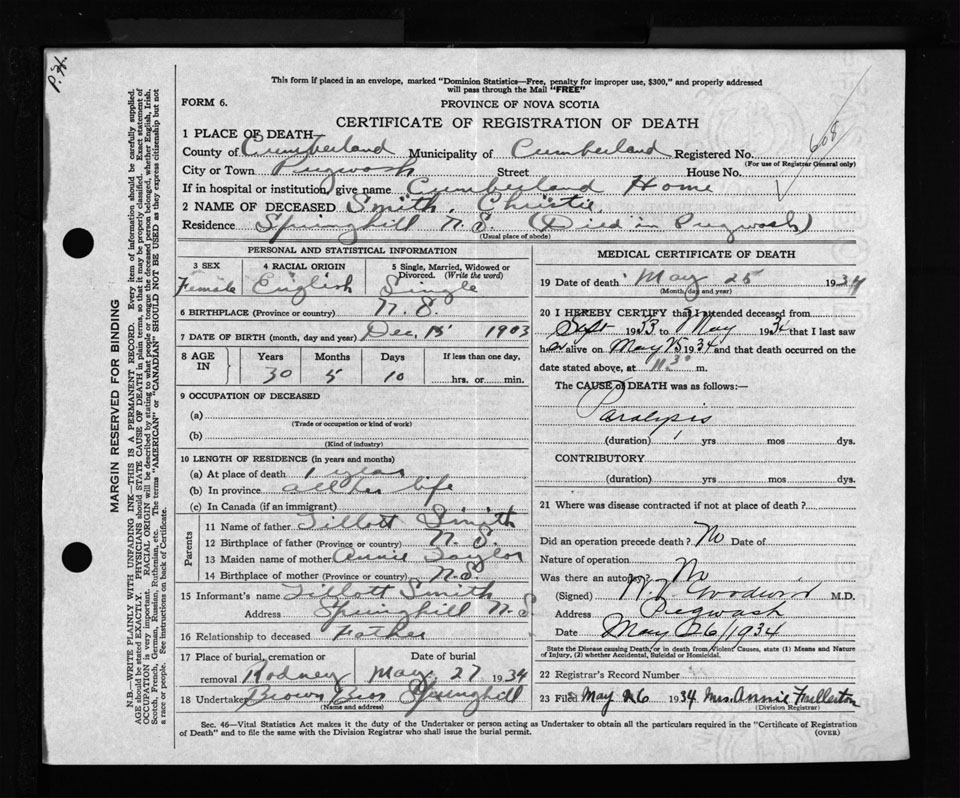 P.H.
This form if placed in an envelope, marked "Dominion Statistics—Free, penalty for improper use, $300," and properly addressed
will pass through the Mail "FREE"
FORM 6.
PROVINCE OF NOVA SCOTIA
CERTIFICATE OF REGISTRATION OF DEATH
1 PLACE OF DEATH
County of Cumberland Municipality of Cumberland Registered No. 608
(For use of Registrar General only)
City or Town Pugwash Street House No.
If in hospital or institution, give name Cumberland Home
2 NAME OF DECEASED Smith, Christie
Residence Springhill N.S. (Died in Pugwash)
(Usual place of abode)
PERSONAL AND STATISTICAL INFORMATION
3 SEX 4 RACIAL ORIGIN 5 Single, Married, Widowed or
Divorced. (Write the word)
Female English Single
6 BIRTHPLACE (Province or country) N.S.
7 DATE OF BIRTH (month, day and year) Dec. 15 1903
8 AGE IN Years Months Days If less than one day,
30 5 10 hrs. or min.
9 OCCUPATION OF DECEASED
(a)
(Trade or occupation or kind of work)
(b)
(Kind of industry)
10 LENGTH OF RESIDENCE (in years and months)
(a) At place of death 1 year
(b) In province all her life
(c) In Canada (if an immigrant)
Parents
11 Name of father Tillott Smith
12 Birthplace of father (Province or country) N.S.
13 Maiden name of mother Annie Taylor
14 Birthplace of mother (Province or country) N.S.
15 Informant's name Tillott Smith
Address Springhill N.S.
16 Relationship to deceased Father
17 Place of burial, cremation or Date of burial
removal Rodney May 27 1934
18 Undertaker Brown Bros Springhill
(Name and address)
MEDICAL CERTIFICATE OF DEATH
19 Date of death May 25 1934
(Month, day and year)
20 I HEREBY CERTIFY that I attended deceased from
Sept 1933 to May 1934 that I last saw
her alive on May 25 1934 and that death occurred on the
date stated above, at 11.30 m.
The CAUSE of DEATH was as follows:—
Paralysis
(duration) 1 yrs mos dys.
CONTRIBUTORY
(duration) yrs mos dys.
21 Where was disease contracted if not at place of death?
Did an operation precede death? No Date of
Nature of operation
Was there an autopsy? No
(Signed) Goodwin M.D.
Address Pugwash
Date May 26/1934
State the Disease causing Death, or in death from Violent Causes, state (1) Means and Nature
of Injury, (2) whether Accidental, Suicidal or Homicidal.
22 Registered Record Number
23 Filed May 26 1934 Mrs. Annie Fullerton
(Division Registrar)
Sec. 46—Vital Statistics Act makes it the duty of the Undertaker or person acting as Undertaker to obtain all the particulars required in the "Certificate of Registration
of Death" and to file the same with the Division Registrar who shall issue the burial permit. (OVER)
MARGIN RESERVED FOR BINDING
N.B.—WRITE PLAINLY WITH UNFADING INK—THIS IS A PERMANENT RECORD. Every item of information should be carefully supplied.
AGE should be stated EXACTLY. PHYSICIANS should STATE CAUSE OF DEATH in plain terms, so that it may be properly classified. Exact statement of
OCCUPATION is very important. RACIAL ORIGIN will be described by stating to what people or tongue the deceased person belonged, whether English, Irish,
Scotch, French, German, Russian, Ruthenian, etc. The terms "AMERICAN" or "CANADIAN" SHOULD NOT BE USED as they express citizenship but not
a race or people. See instructions on back of Certificate.